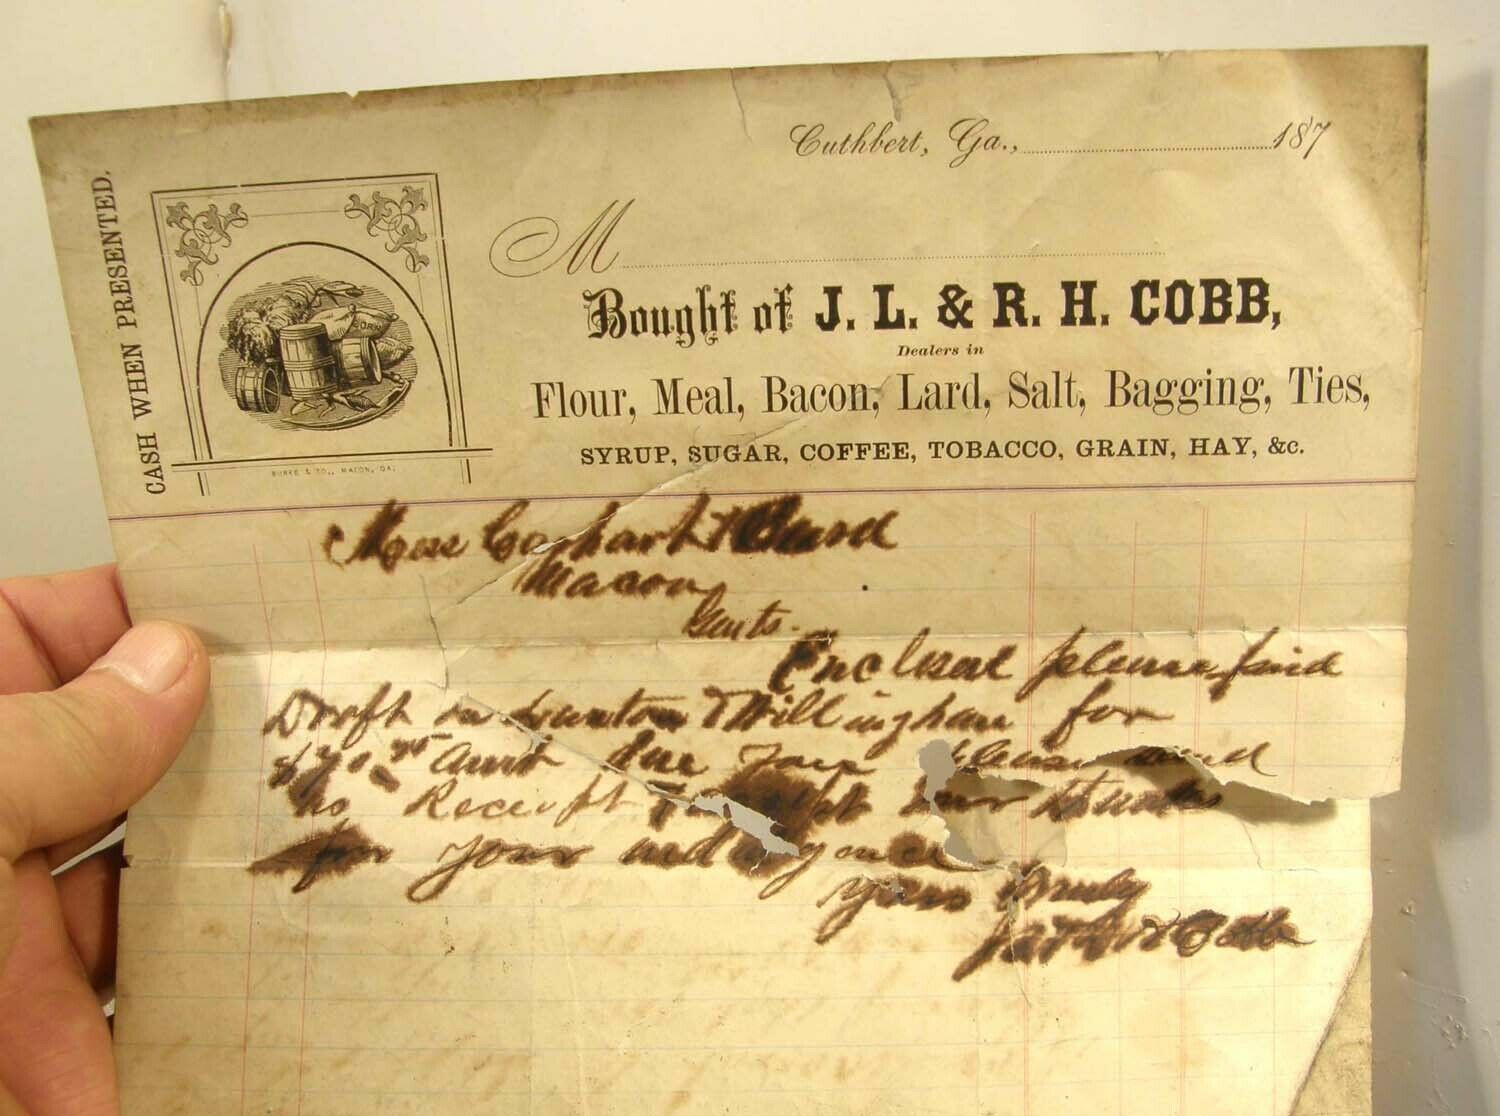 Cuthbert, Ga., 187
CASH WHEN PRESENTED.
M
Bought of J. L. & R. H. COBB,
Dealers in
Flour, Meal, Bacon, Lard, Salt, Bagging, Ties,
SYRUP, SUGAR, COFFEE, TOBACCO, GRAIN, HAY, &c.
CORN
BURKE & CO., MACON, GA.
Mess &
Macon
Gents.
Enclosed please find
Draft on & Willingham for
due you please send
us Receipt our thanks
for your indulgence
yours truly
Cobb